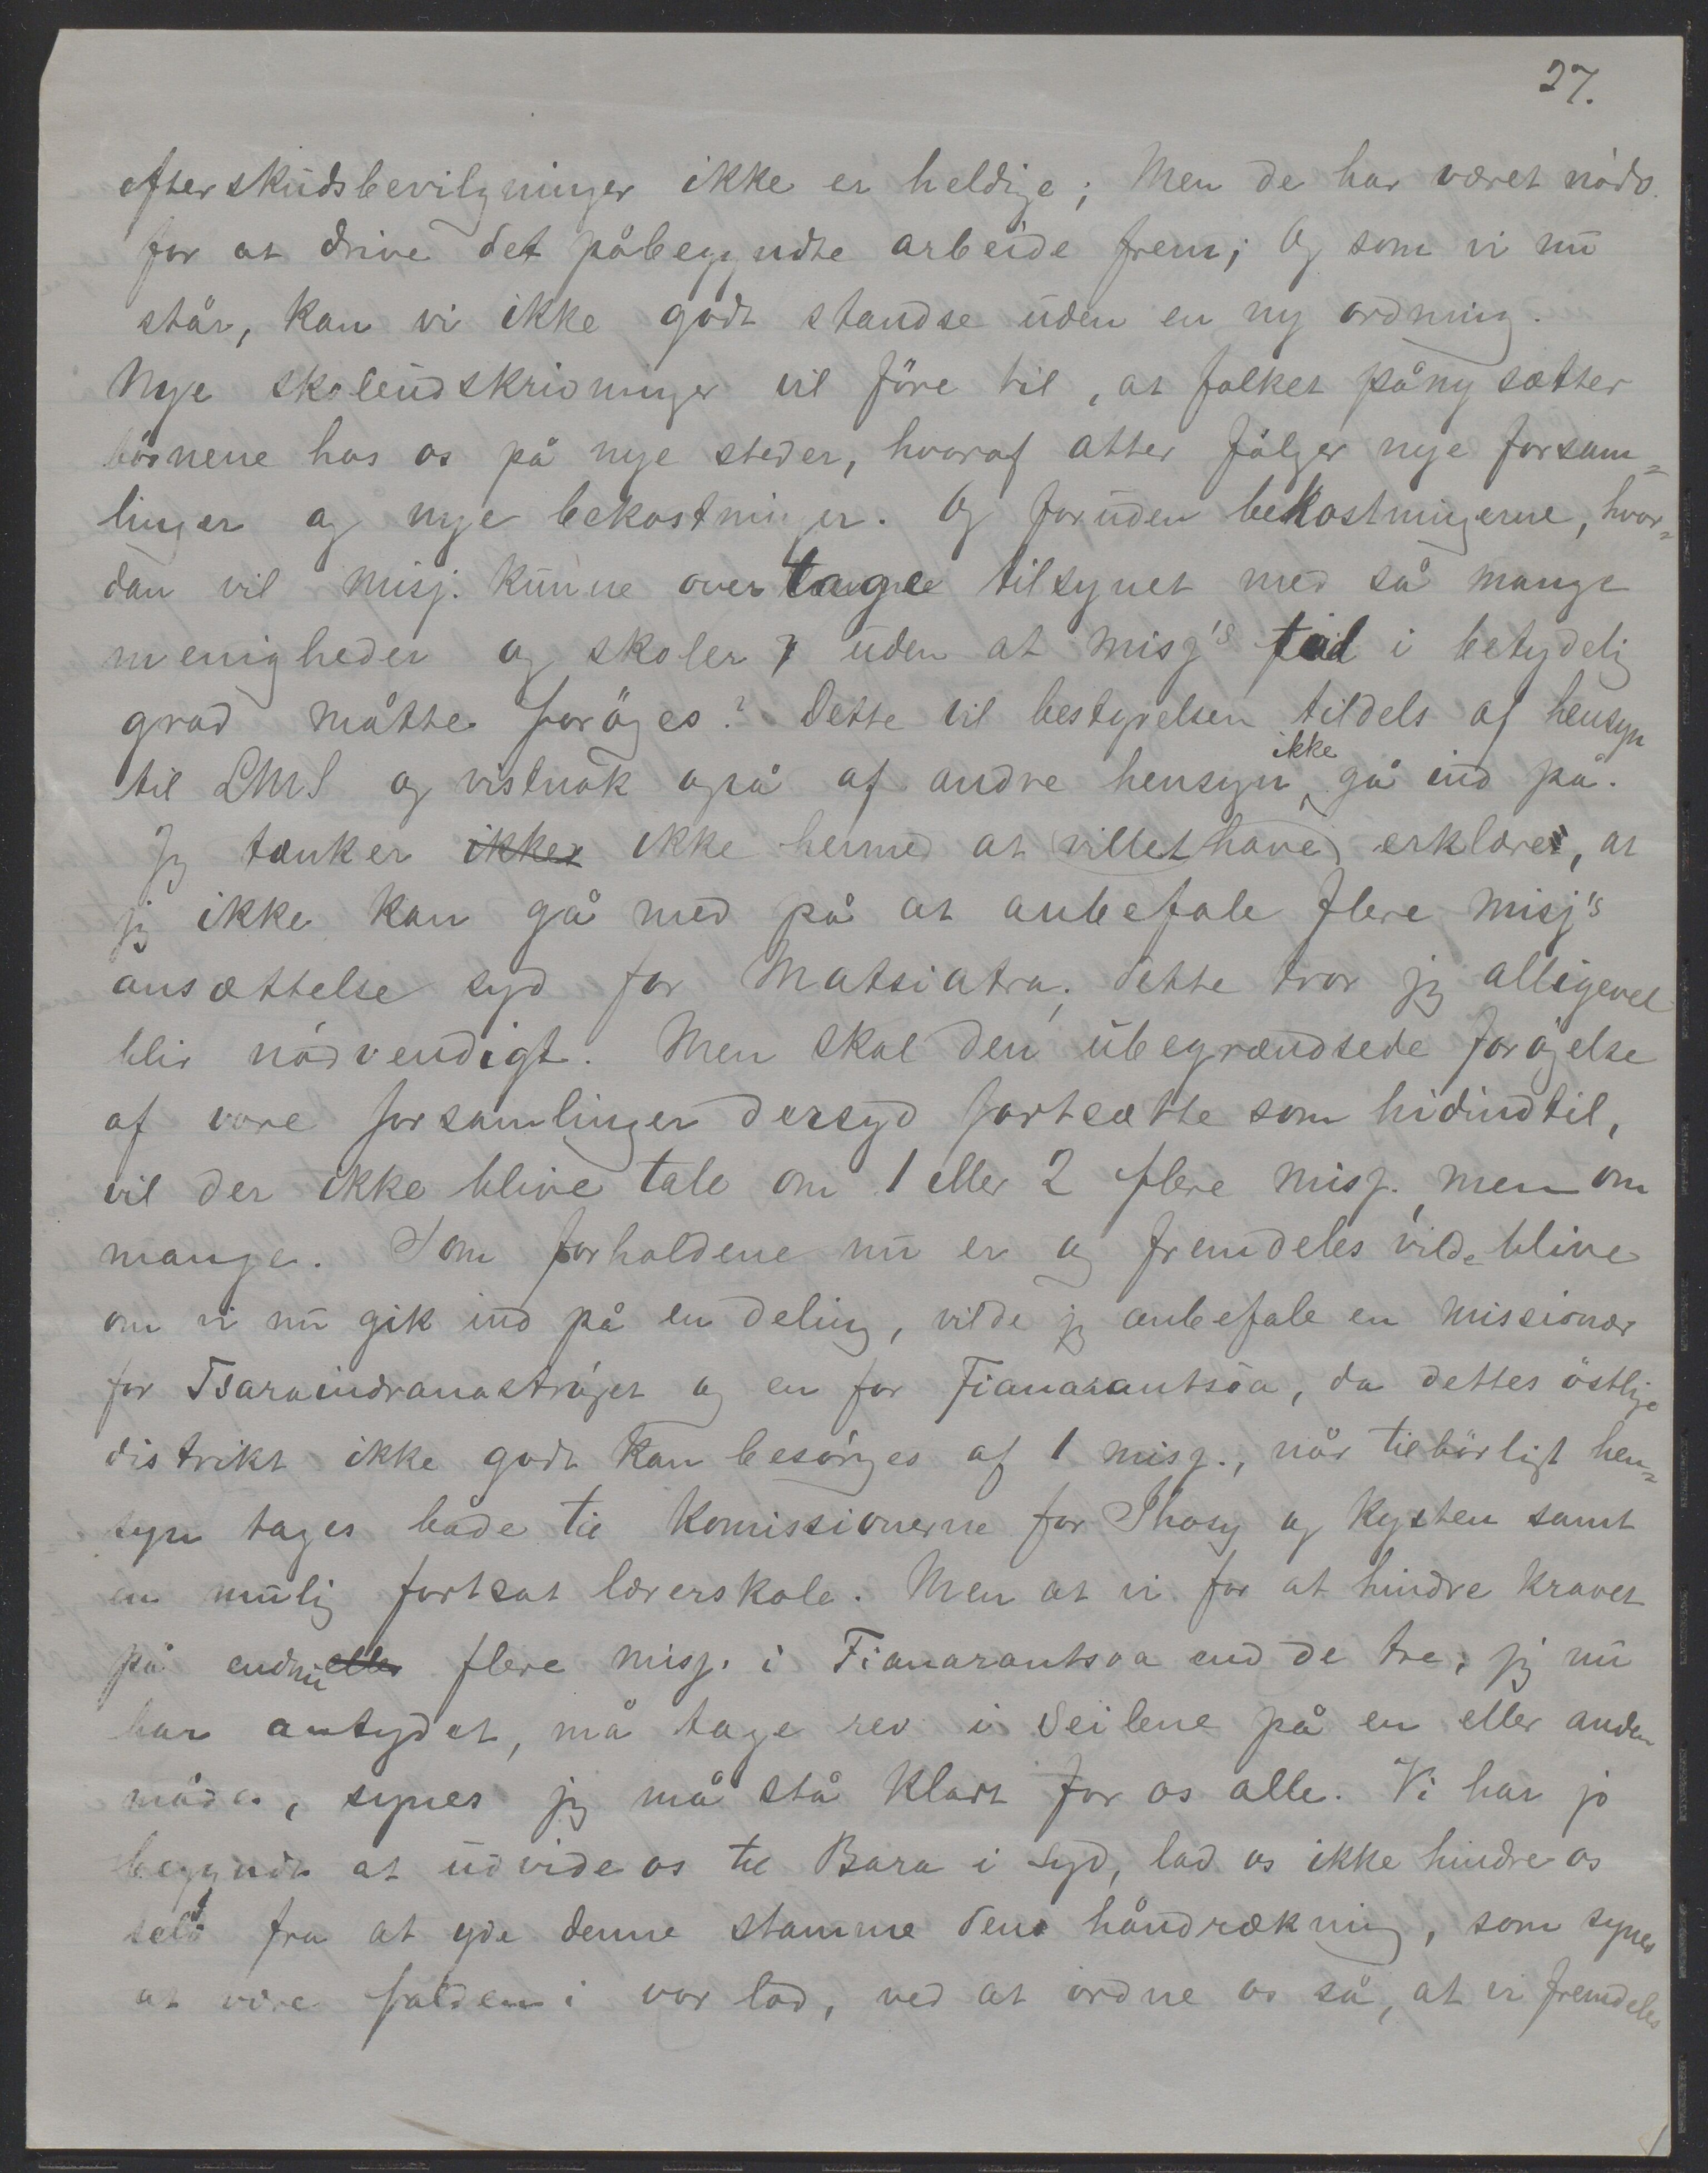 27.
efterskudsbevilgninger ikke er heldige; Men de har været nødv.
for at drive det påbegyndte arbeide frem; Og som vi nu
står, kan vi ikke godt standse uden en ny ordning.
Nye skoleudskrivninger vil före til, at folket påny sætter
börnene hos os på nye steder, hvoraf atter følger nye forsam=
linger og nye bekostninger. Og foruden bekostningerne, hvor=
dan vil misj. kunne overtage tilsynet med så mange
menigheder og skoler, uden at misj's tal i betydelig
grad måtte foröges? Dette vil bestyrelsen tildels af hensyn
til LMS og vistnok også af andre hensyn ikke gå ind på.
Jeg tænker ikke hermed at villet have erklæret, at
jeg ikke kan gå med på at anbefale flere misj's
ansættelse syd for Matsiatra; dette tror jeg alligevel
blir nødvendigt. Men skal den ubegrændsede forögelse
af vore forsamlinger dersyd fortsætte som hidindtil,
vil der ikke blive tale om 1 eller 2 flere misj. men om
mange. Som forholdene nu er og fremdeles vilde blive
om vi nu gik ind på en deling, vilde jeg anbefale en missionær
for Tsaraindranaströget og en for Fianarantsoa, da dettes östlige
distrikt ikke godt kan besörges af 1 misj., når tilbörligt hen=
syn tages både til Komissionerne for Ihosy og Kysten samt
en mulig fortsat lærerskole. Men at vi for at hindre kravet
på endnu flere misj. i Fianarantsoa end de tre, jeg nu
har antydet, må tage rev i seilene på en eller anden
måde, synes jeg må stå klart for os alle. Vi har jo
begyndt at udvide os til Bara i syd, lad os ikke hindre os
selv fra at yde denne stamme den håndrækning, som synes
at være falden i vor lod, ved at ordne os så, at vi fremdeles